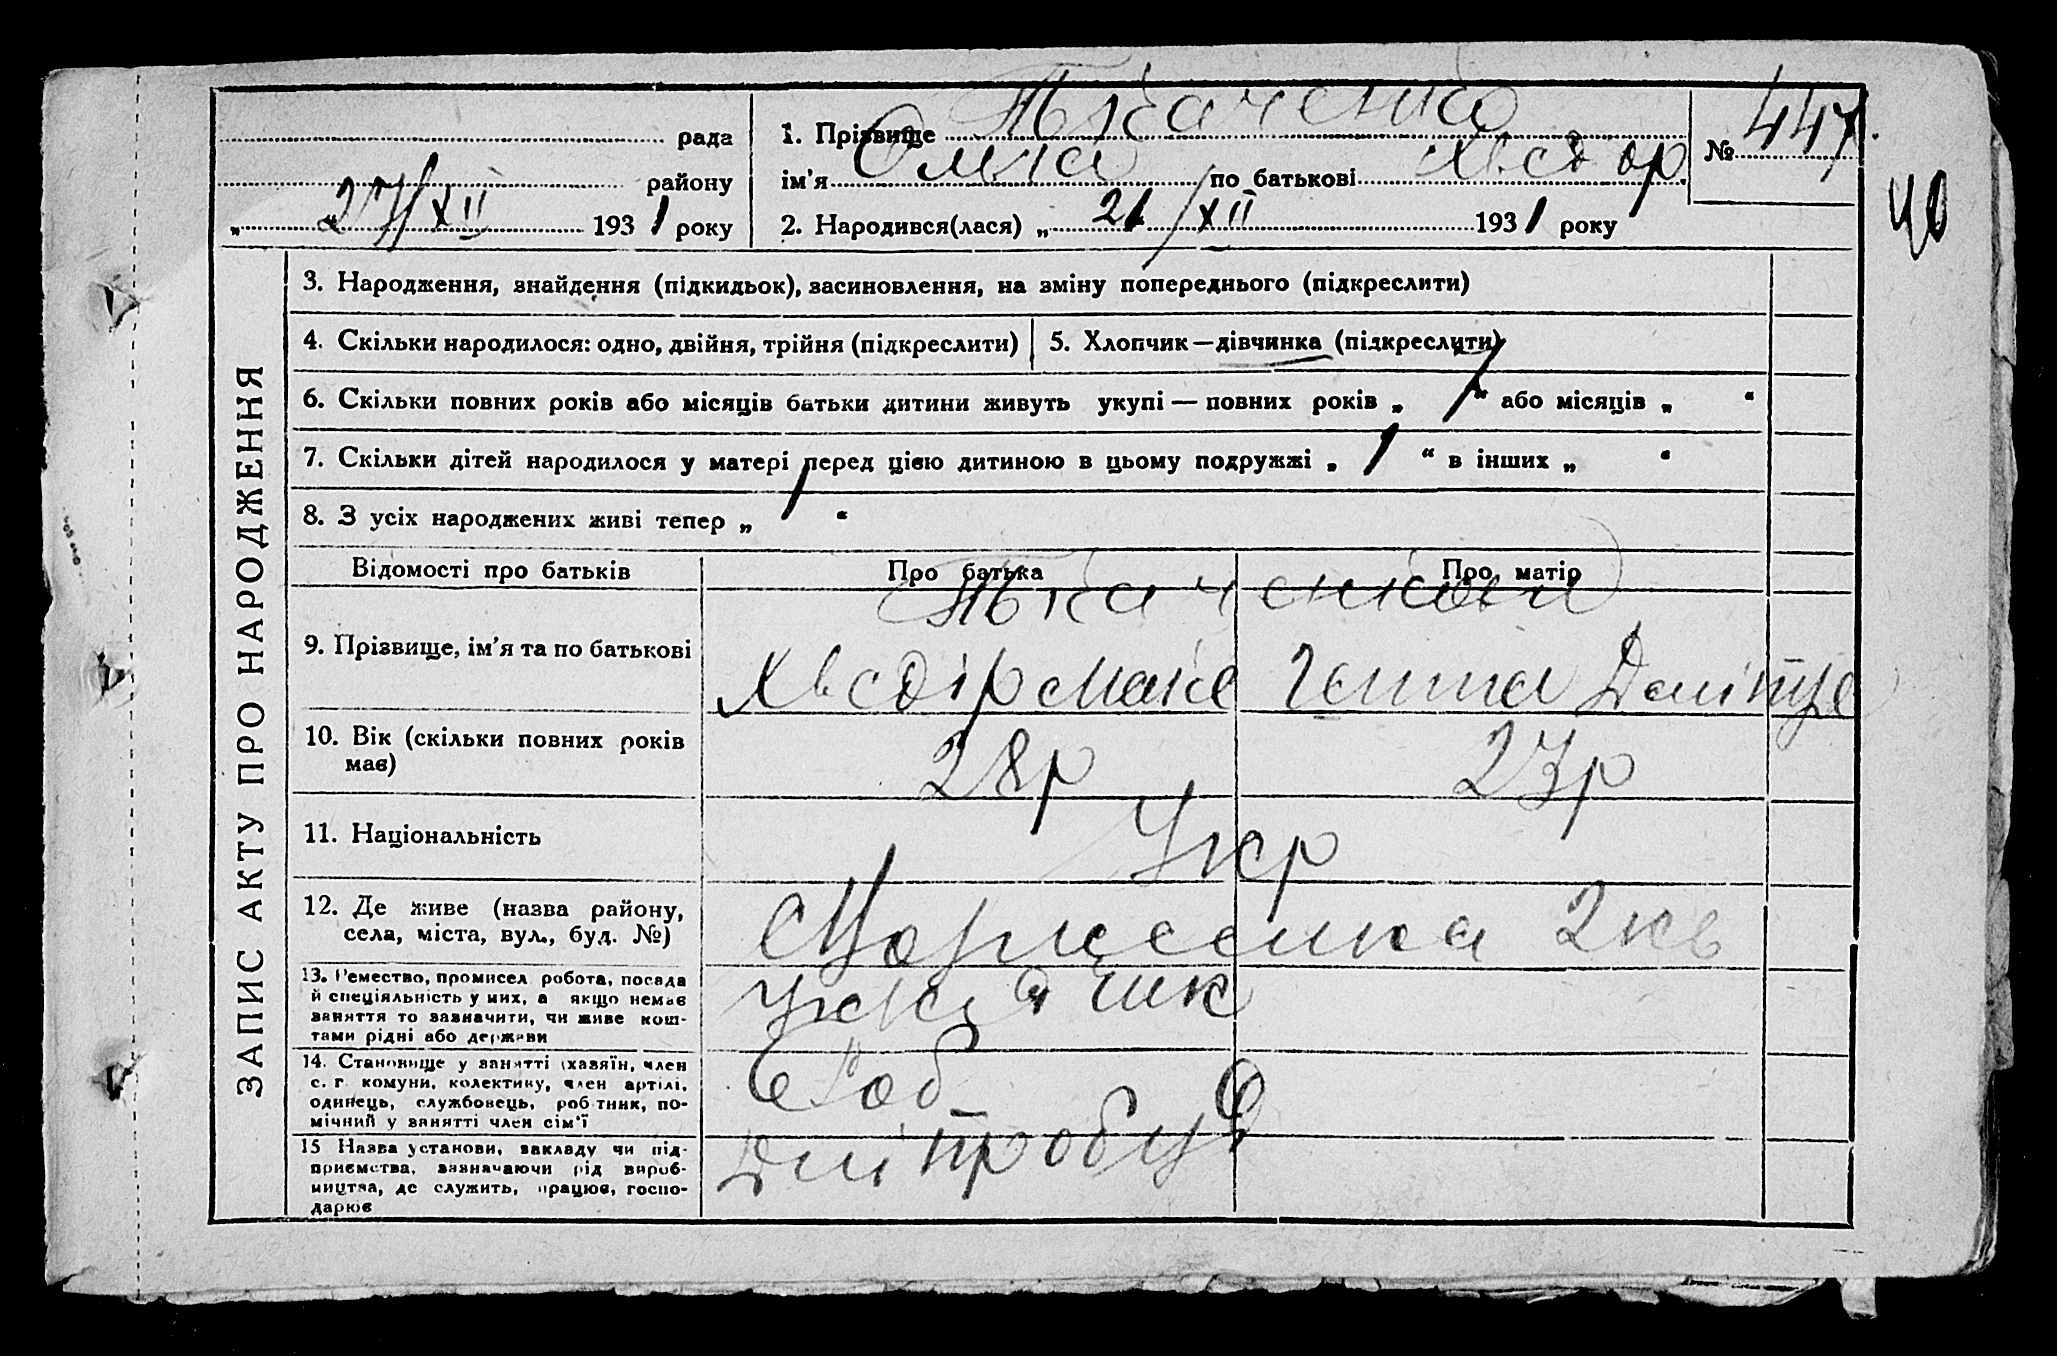 Ткаченко
рада 1. Прізвище № 447
40
району ім'я Олька по батькові Хведор.
„ 27/XII 1931 року 2. Народився(лася) „ 21/XII 1931 року
ЗАПИС АКТУ ПРО НАРОДЖЕННЯ
3. Народження, знайдення (підкидьок), засиновлення, на зміну попереднього (підкреслити)
4. Скільки народилося: одно, двійня, трійня (підкреслити) 5. Хлопчик — дівчинка (підкреслити)
6. Скільки повних років або місяців батьки дитини живуть укупі — повних років „ 1 “ або місяців „ “
7. Скільки дітей народилося у матері перед цією дитиною в цьому подружжі „ 1 “ в інших „ “
8. З усіх народжених живі тепер „ 1 “
Відомості про батьків Про батька Про матір
Ткаченкови
9. Прізвище, ім'я та по батькові
Хведір Макс Ганна Дмітр
10. Вік (скільки повних років
має)
28р 23р
11. Національність Укр
12. Де живе (назва району,
села, міста, вул., буд. №)
2 кв
13. Ремество, промисел робота, посада
й спеціяльність у них, а якщо немає
заняття то зазначити, чи живе кош-
тами рідні або держави
14. Становище у занятті (хазяїн, член
с. г. комуни, колективу, член артілі,
одинець, службовець, робітник, по-
мічний у занятті член сім'ї
Роб
15 Назва установи, закладу чи під-
приємства, зазначаючи рід вироб-
ництва, де служить, працює, госпо-
дарює